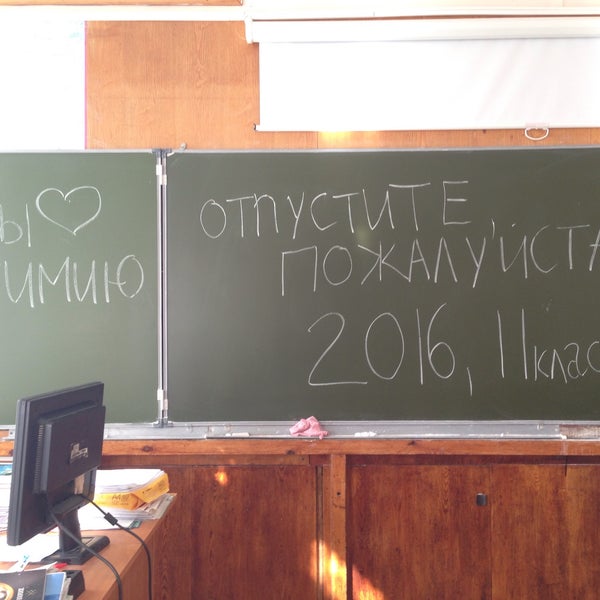 Ы ♡
ИМИЮ
ОТПУСТИТЕ,
ПОЖАЛУЙСТА
2016, 11 клас
A4